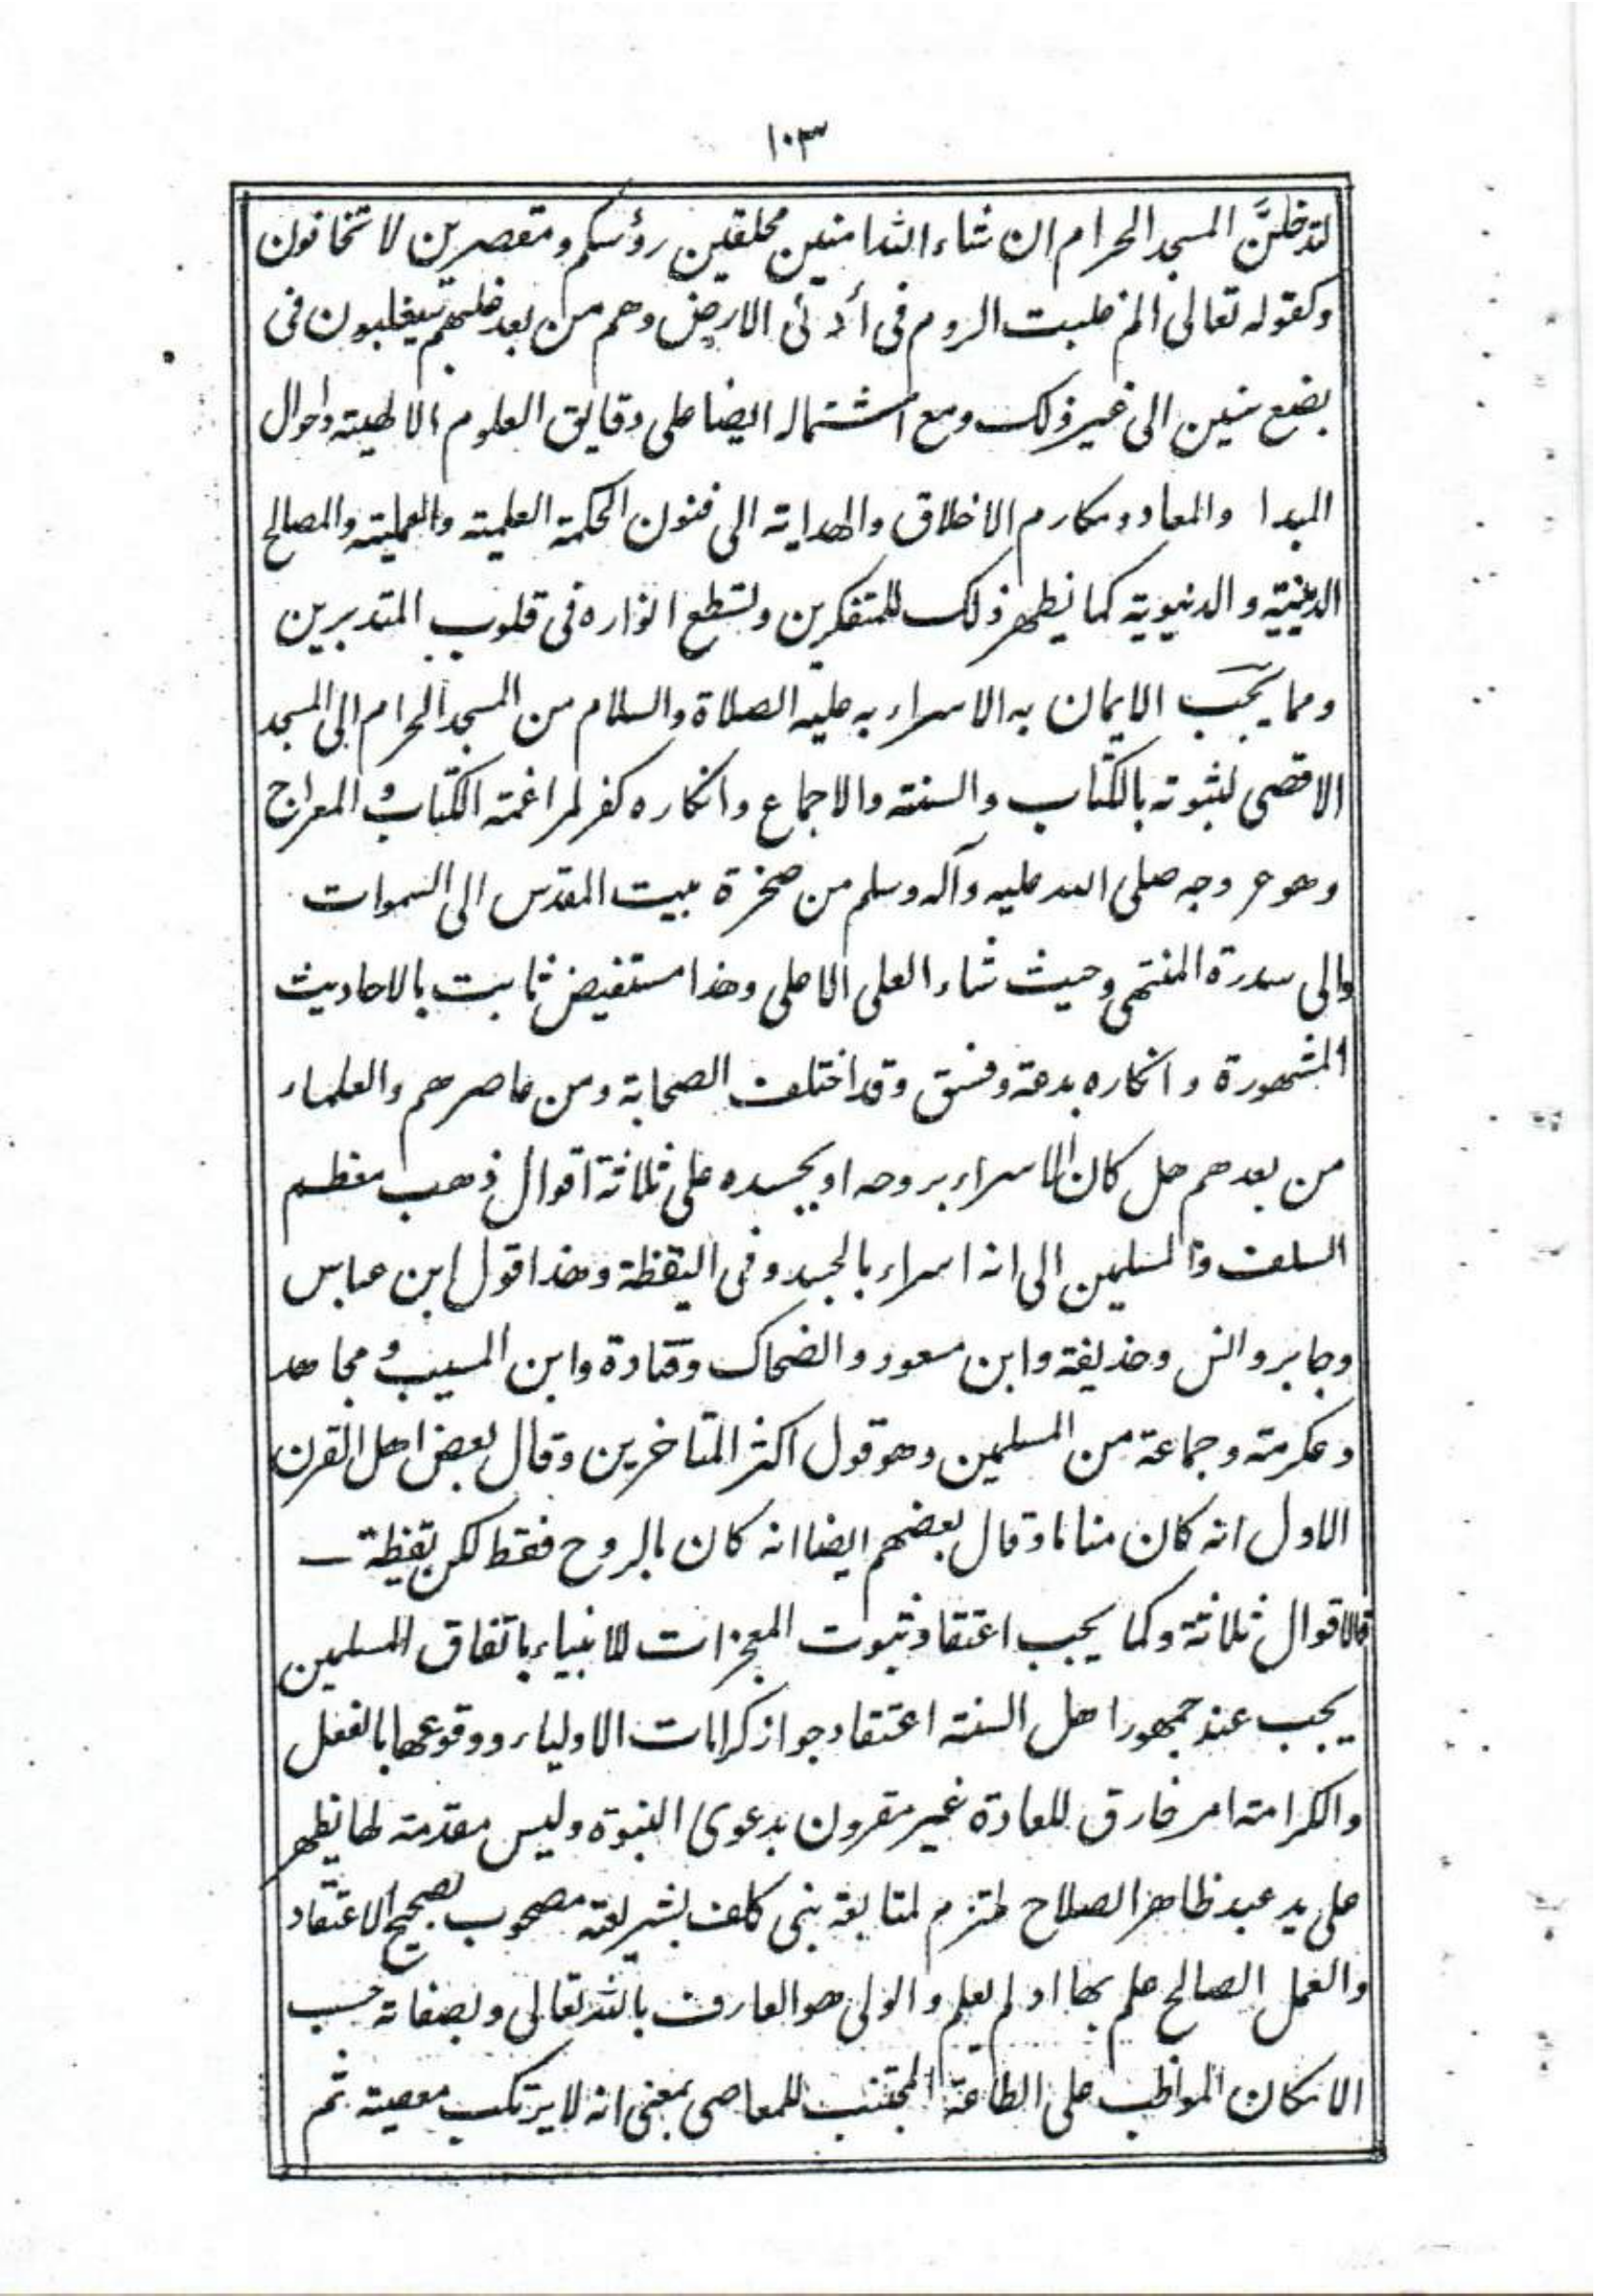 ١٠٣
لتدخلنَّ المسجد الحرام ان شاء الله امنين محلقين رؤسكم ومقصرين لا تخافون
وكقوله تعالى الم غلبت الروم فى أدنى الارض وهم من بعد غلبهم سيغلبون فى
بضع سنين الى غير ذلك ومع اشتماله ايضا على دقايق العلوم الالهية واحوال
المبدا والمعاد ومكارم الاخلاق والهداية الى فنون الحكمة العلمية والعملية والمصالح
الدينية والدنيوية كما يظهر ذلك للمتفكرين وتسطع انواره فى قلوب المتدبرين
ومما يجب الايمان به الاسراء به عليه الصلاة والسلام من المسجد الحرام الى المسجد
الاقصى لثبوته بالكتاب والسنة والاجماع وانكاره كفر لمراغمة الكتاب و المعراج
وهو عروجه صلى الله عليه وآله وسلم من صخرة بيت المقدس الى السموات
والى سدرة المنتهى وحيث شاء العلى الاعلى وهذا مستفيض ثابت بالاحاديث
المشهورة وانكاره بدعة وفسق وقد اختلف الصحابة ومن عاصرهم والعلماء
من بعدهم هل كان الاسراء بروحه او بجسده على ثلاثة اقوال ذهب معظم
السلف والمسلمين الى انه اسراء بالجسد وفى اليقظة وهذا قول ابن عباس
وجابر وانس وحذيفة وابن مسعود والضحاك وقتادة وابن المسيب و مجاهد
وعكرمة وجماعة من المسلمين وهو قول اكثر المتاخرين وقال بعض اهل القرن
الاول انه كان مناما وقال بعضهم ايضا انه كان بالروح فقط لكن يقظة
فالاقوال ثلاثة وكما يجب اعتقاد ثبوت المعجزات للانبياء باتفاق المسلمين
يجب عند جمهور اهل السنة اعتقاد جواز كرامات الاولياء ووقوعها بالفعل
والكرامة امر خارق للعادة غير مقرون بدعوى النبوة وليس مقدمة لها يظهر
على يد عبد ظاهر الصلاح ملتزم لمتابعة نبى كلف بشريعته مصحوب بصحيح الاعتقاد
والعمل الصالح علم بها او لم يعلم والولى هو العارف بالله تعالى وبصفاته حسب
الامكان المواظب على الطاعة المجتنب للمعاصى بمعنى انه لا يرتكب معصية ثم